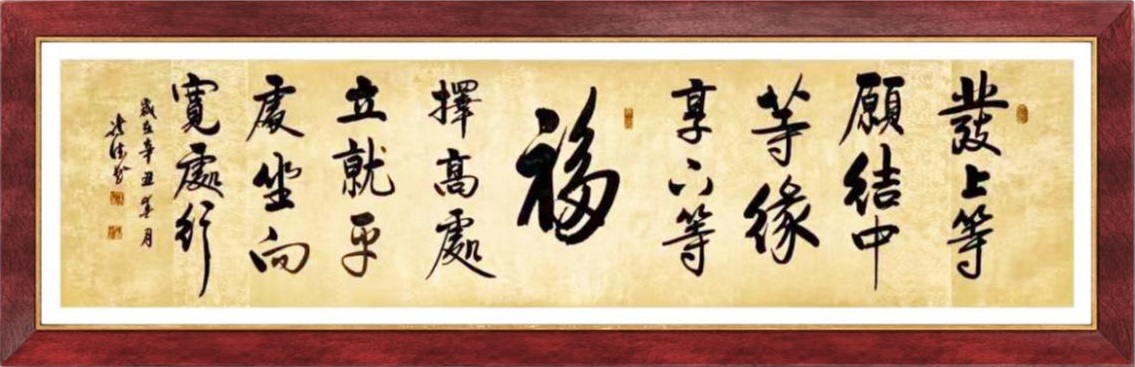 發上等
願結中
等緣
享下等
福
擇高處
立就平
處坐向
寬處行
歲在辛丑 月